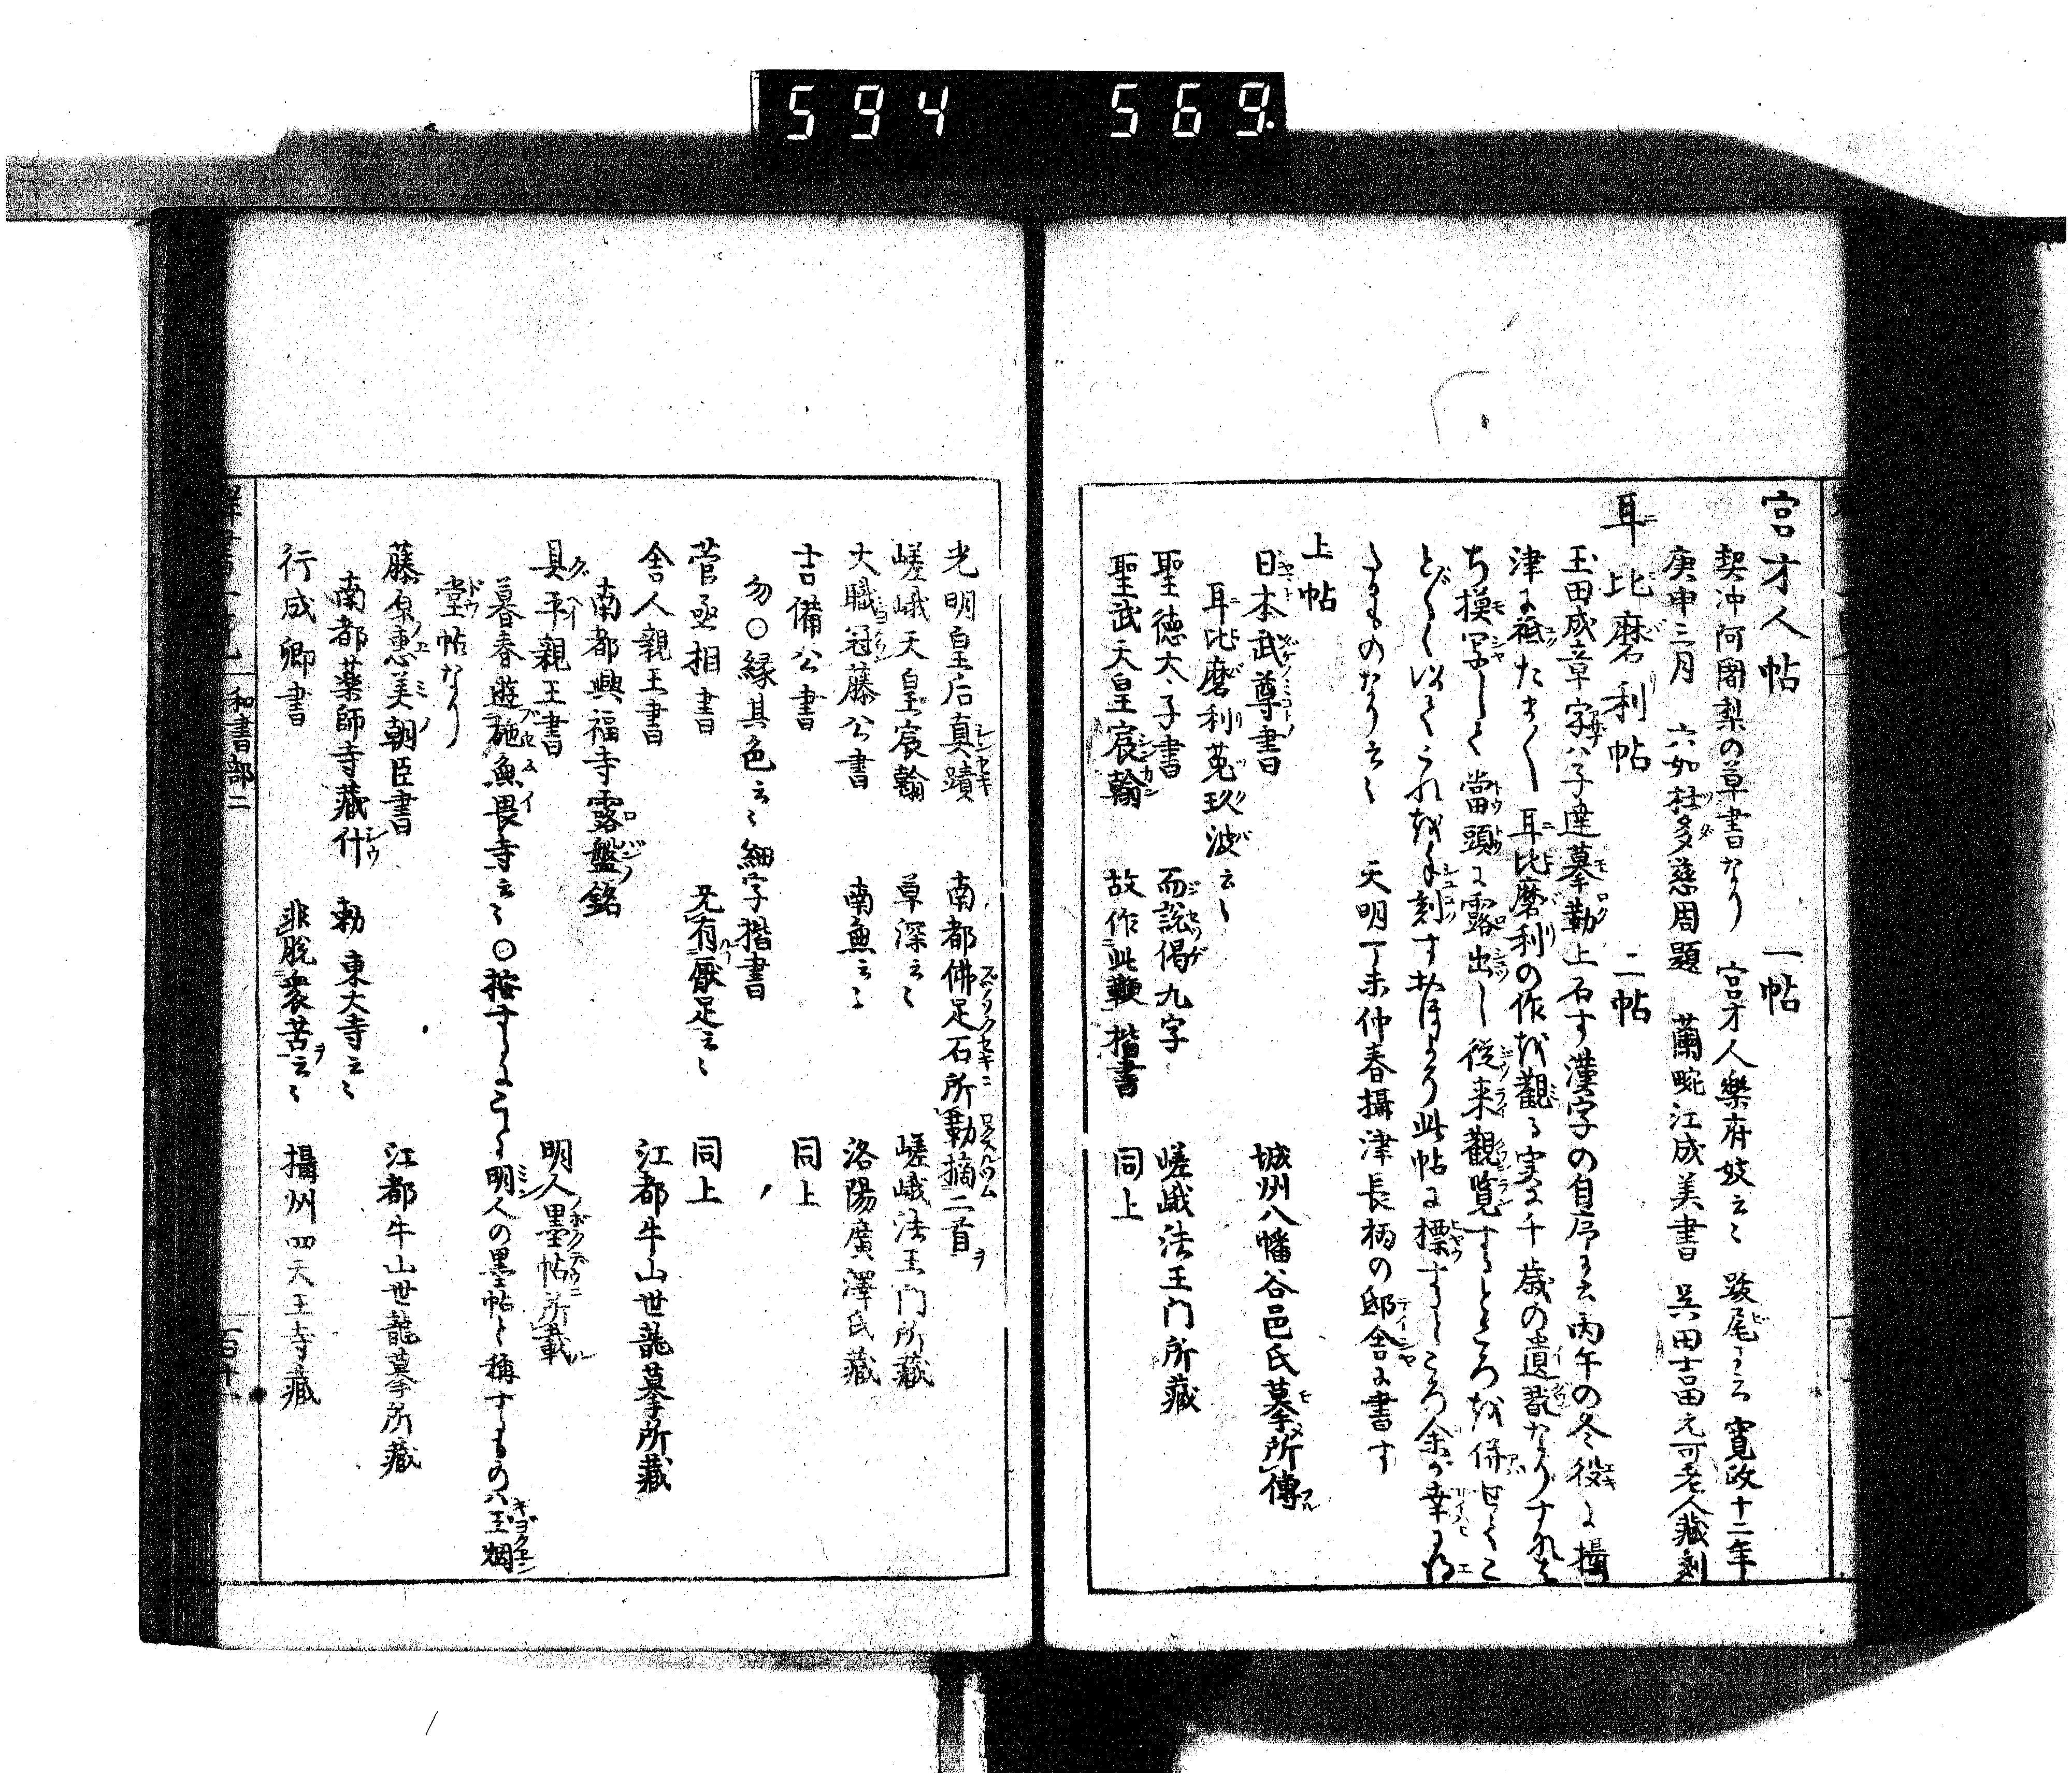 594 569.
宮才人帖 一帖
契沖阿闍梨の草書なり 宮才人樂府妓云々 跋尾ニ云 寛政十二年
庚申三月 六如杜多慈周題 蘭畹江成美書 呉田士冨元可老人藏刻
耳比磨利帖 二帖
玉田成章字ハ子達摹勒上石す漢字の自序ニ云丙午の冬役に攝
津に祗たまく耳比磨利の作を觀る実に千歳の遺翫なりすれは
ち摸写して當頭に露出し従来觀覧するところを併せてこ
とくくこれを刻す 此帖に標するところ余が幸に
るものなり云々 天明丁未仲春攝津長柄の邸舎に書す
上帖
日本武尊書 城州八幡谷邑氏摹所傳
耳比磨利菟玖波云々
聖徳太子書 而説偈九字 嵯峨法王门所藏
聖武天皇宸翰 故作此鞭 楷書 同上
光明皇后真蹟 南都佛足石所勒摘二首
嵯峨天皇宸翰 草深云々 嵯峨法王门所藏
大職冠藤公書 南無云々 洛陽廣澤氏藏
吉備公書 同上
勿〇縁其色云々 細字楷書
菅丞相書 无有厭足云々 同上
舎人親王書 江都牛山世龍摹所藏
南都興福寺露盤銘
具平親王書 明人墨帖所載
暮春遊施無畏寺云々 〇按するにこゝに明人の墨帖と稱するものハ玉烟
堂帖なり
藤原惠美朝臣書 江都牛山世龍摹所藏
南都藥師寺藏什 勅 東大寺云々
行成卿書 非脱衆苦云々 攝州四天王寺藏
和書部二